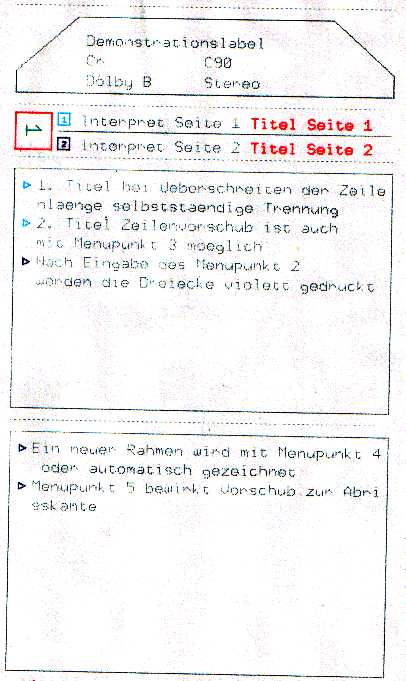 Demonstrationslabel
Cr C90
Dolby B Stereo
1 1 Interpret Seite 1 Titel Seite 1
2 Interpret Seite 2 Titel Seite 2
1. Titel bei Ueberschreiten der Zeile
nlaenge selbststaendige Trennung
2. Titel Zeilenvorschub ist auch
mit Menupunkt 3 moeglich
Nach Eingabe des Menupunkt 2
werden die Dreiecke violett gedruckt
Ein neuer Rahmen wird mit Menupunkt 4
oder automatisch gezeichnet
Menupunkt 5 bewirkt Vorschub zur Abri
sskante